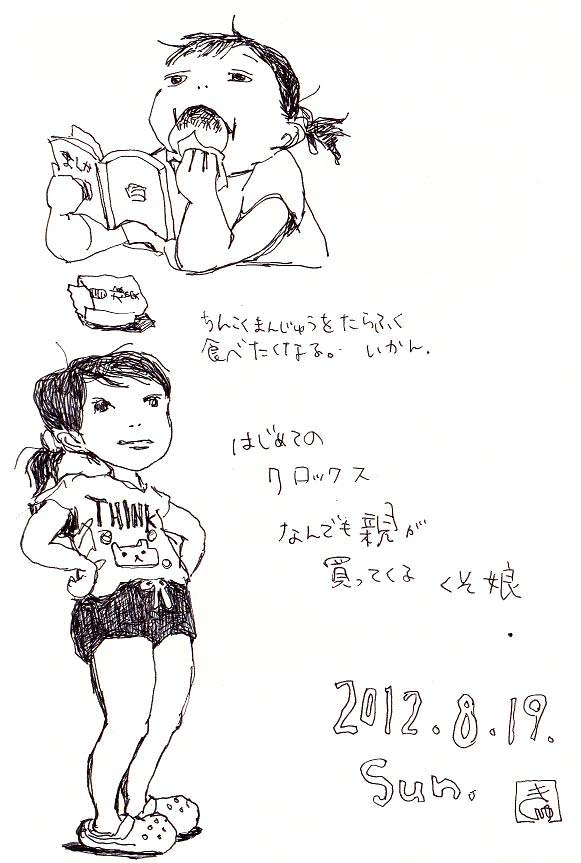 ましか
ちんこくまんじゅうをたらふく
食べたくなる。 いかん.
はじめての
クロックス
THINK
なんでも親が
買ってくる くそ娘
2012.8.19.
Sun.